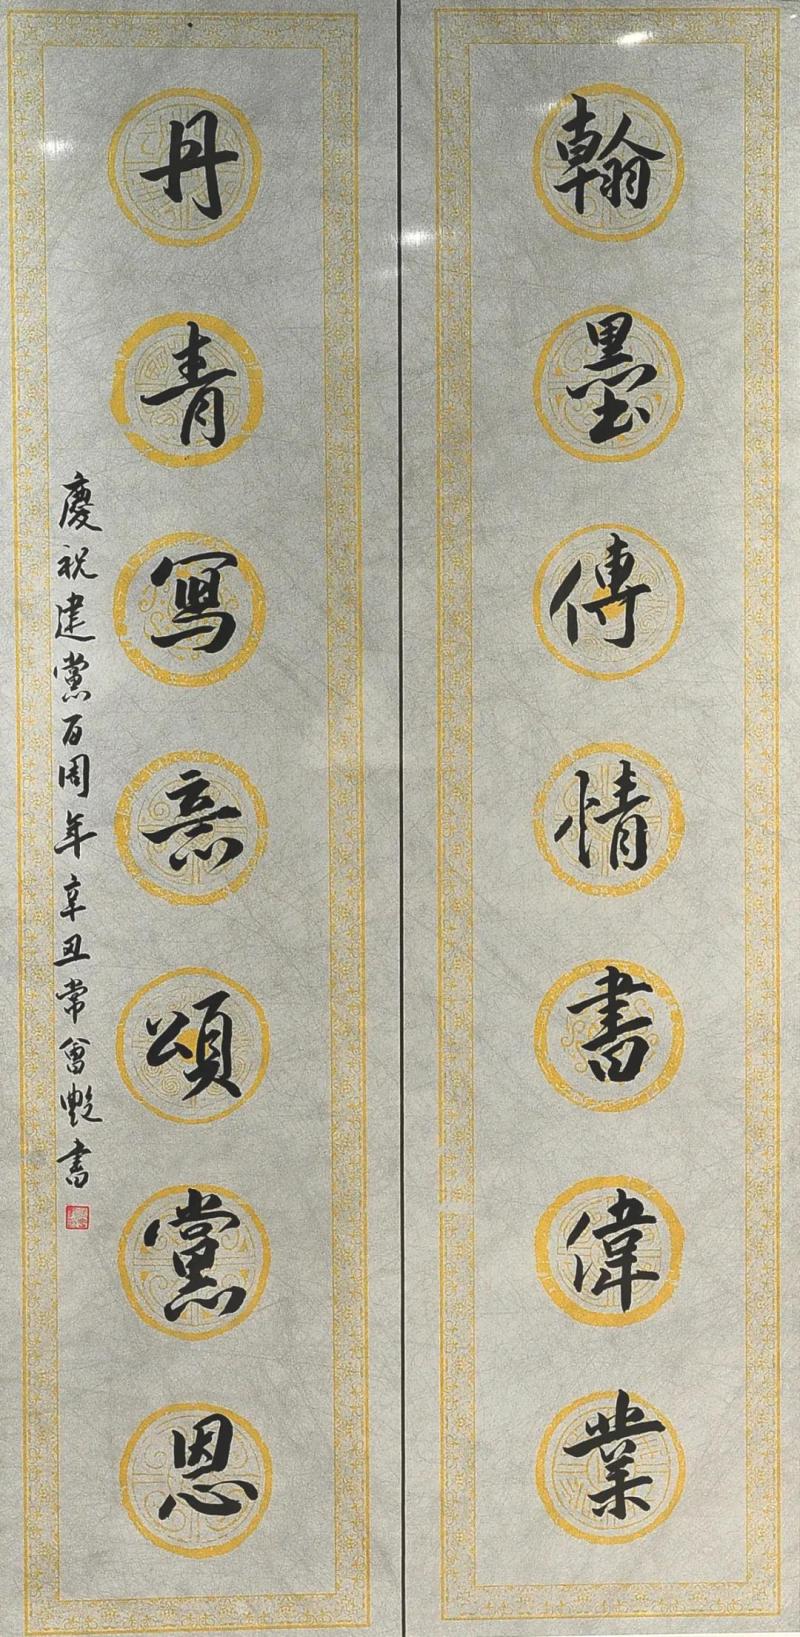 翰墨傳情書偉業
丹青寫意頌黨恩
慶祝建黨百周年辛丑常會艷書